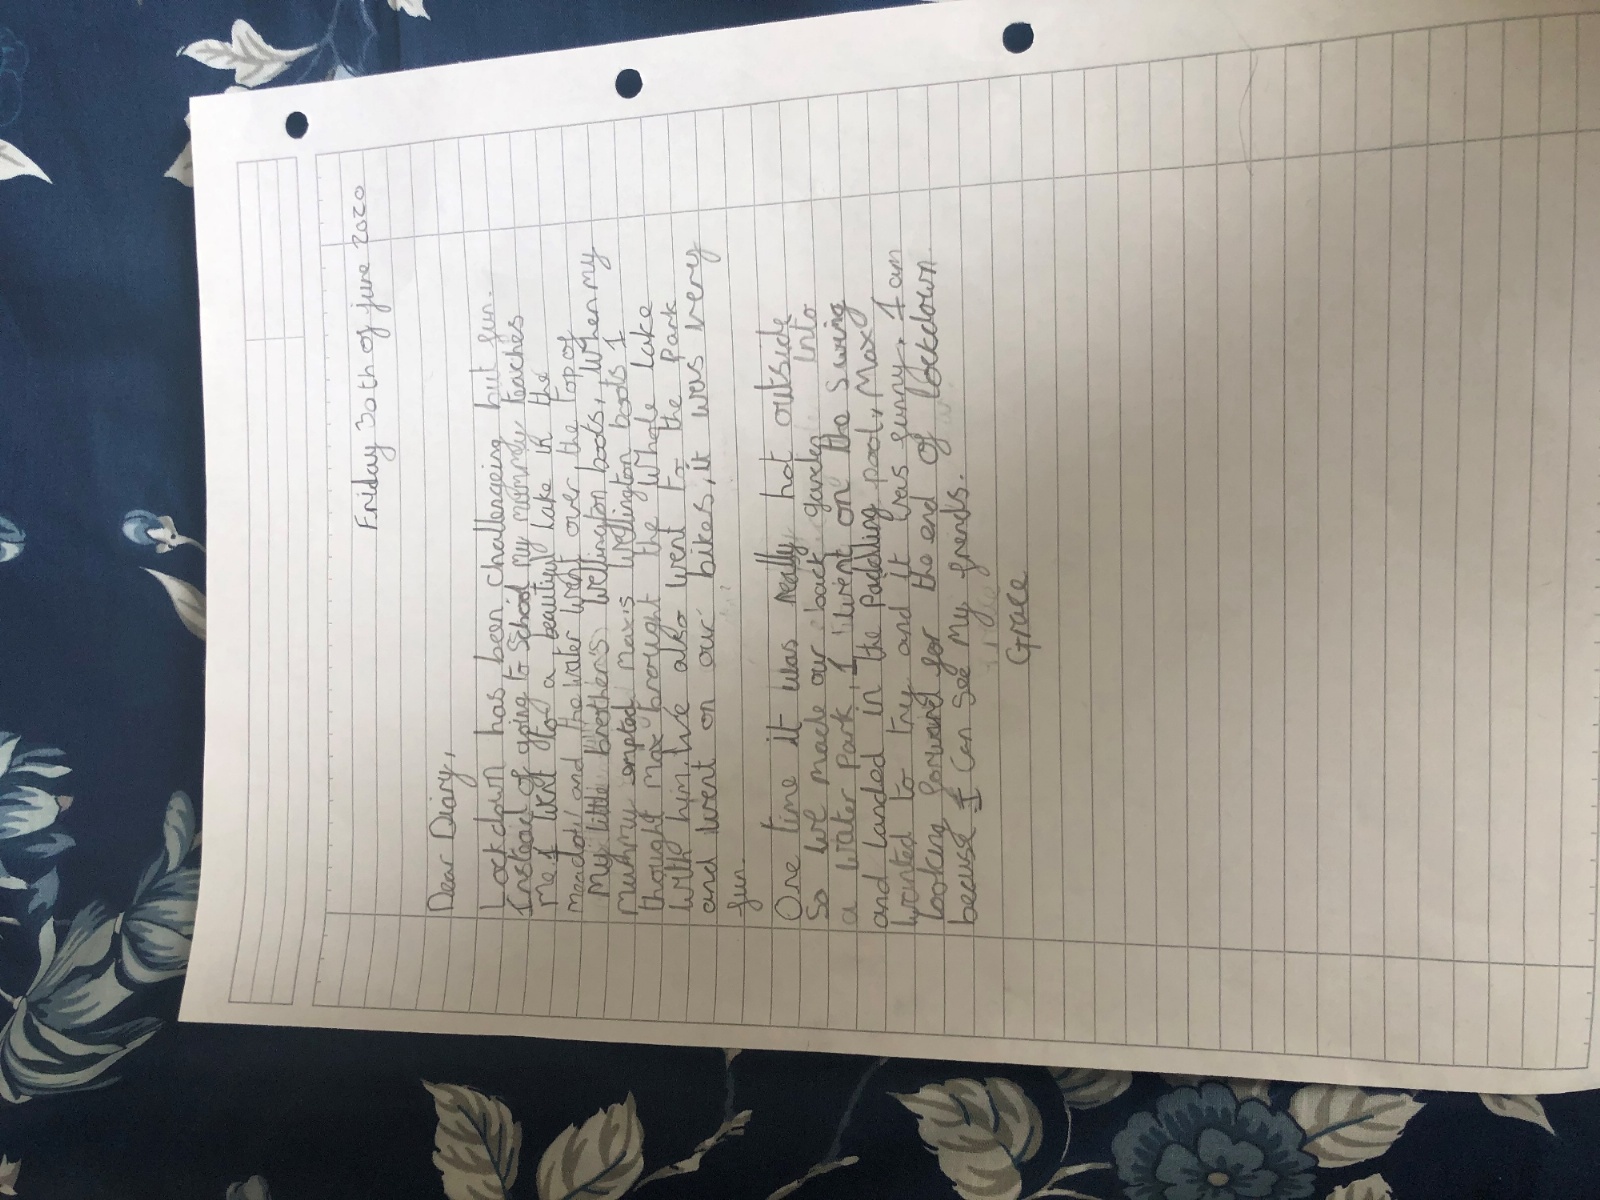 Friday 30th of june 2020
Dear Diary,
Lockdown has been challengeing but fun.
Instead of going to School my mommy teaches
me. I went for a beautiful lake in the
meadow and the water went over the top of
My little brother's wellington boots, When my
mummy empted max's wellington boots I
thought Max brought the Whole lake
with him. We also went to the Park
and went on our bikes, it was very
fun.
One time it was really hot outside
So we made our back garden into
a water park, I went on the Swing
and landed in the Paddling pool, Max
wanted to try and it was funny. I am
looking forward for the end of lockdown
becuse I can see My friends.
Grace